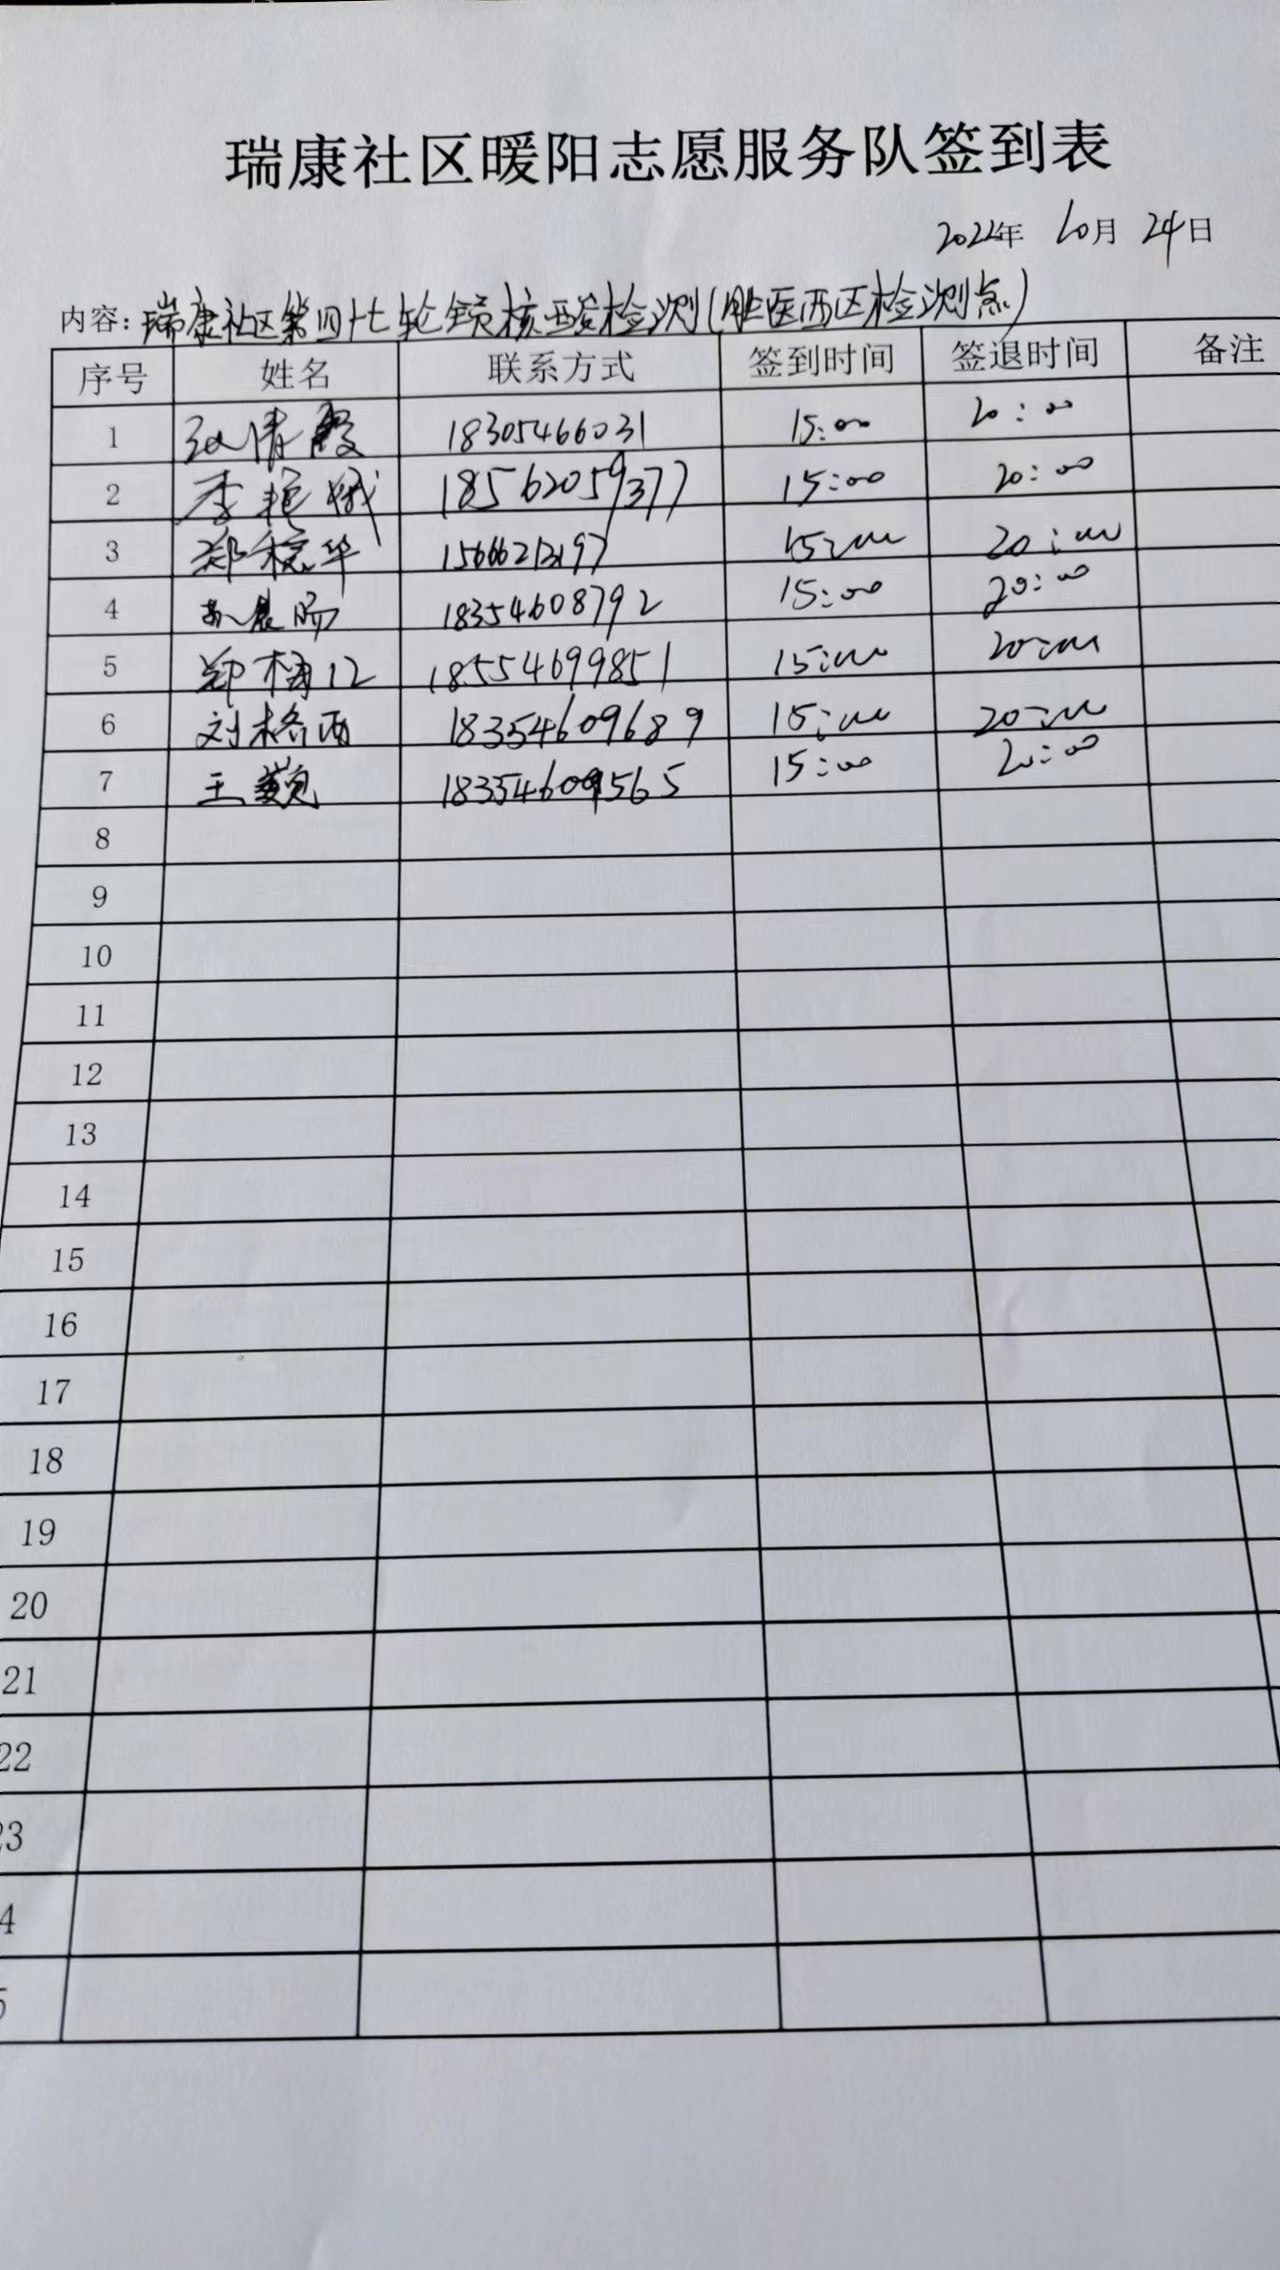 瑞康社区暖阳志愿服务队签到表
2022年 10月 24日
内容：瑞康社区第四十七轮全员核酸检测(胜医西区检测点)
序号 姓名 联系方式 签到时间 签退时间 备注
1 清霞 18305466031 15:00 20:00
2 李艳娥 18562059377 15:00 20:00
3 郑 华 15666213197 15:00 20:00
4 晨阳 18354608792 15:00 20:00
5 郑梅江 18554699851 15:00 20:00
6 刘格西 18354609689 15:00 20:00
7 王巍 18354609565 15:00 20:00
8
9
10
11
12
13
14
15
16
17
18
19
20
21
22
23
4
5